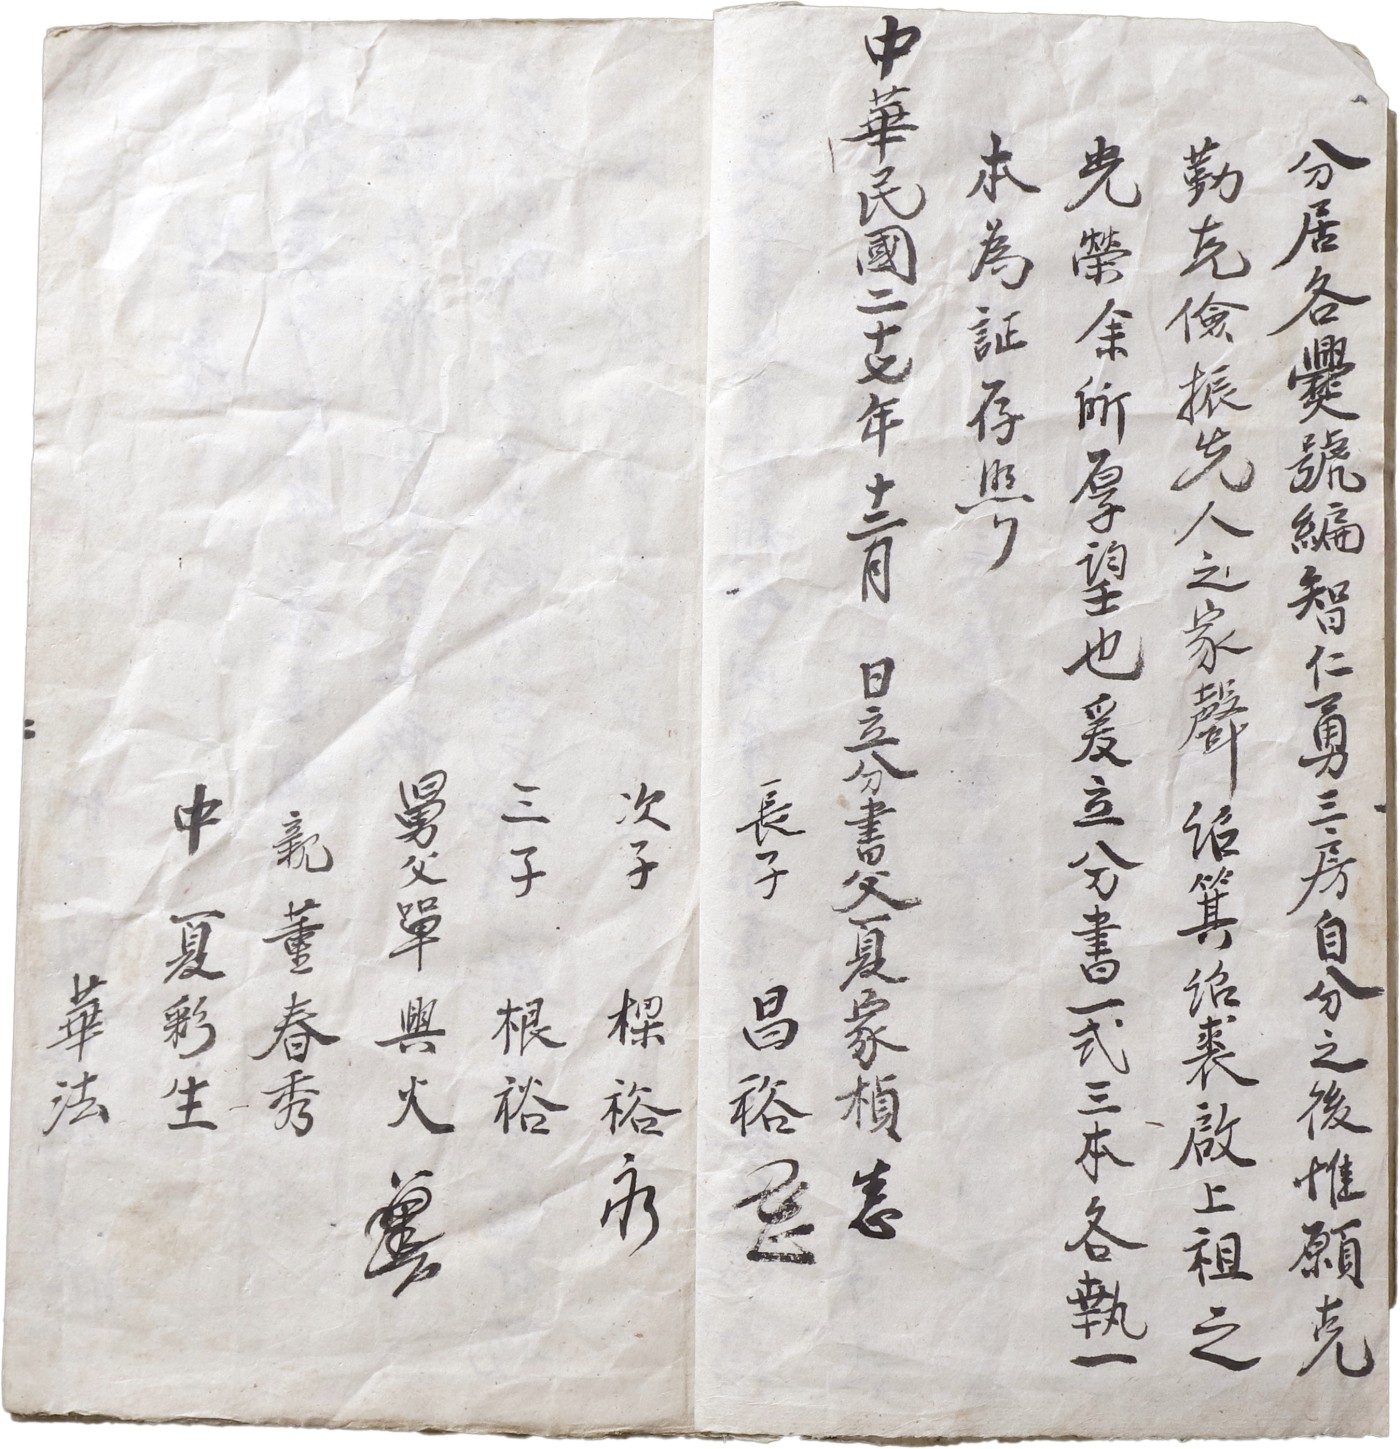 分居各爨號編智仁勇三房自分之後惟願克
勤克儉振先人之家聲紹箕紹裘啟上祖之
光榮余所厚望也爰立分書一式三本各執一
本為証存照
中華民國二十七年十二月 日立分書父夏家楨
長子 昌裕
次子 樑裕
三子 根裕
舅父單興火
親董春秀
中 夏彩生
華法